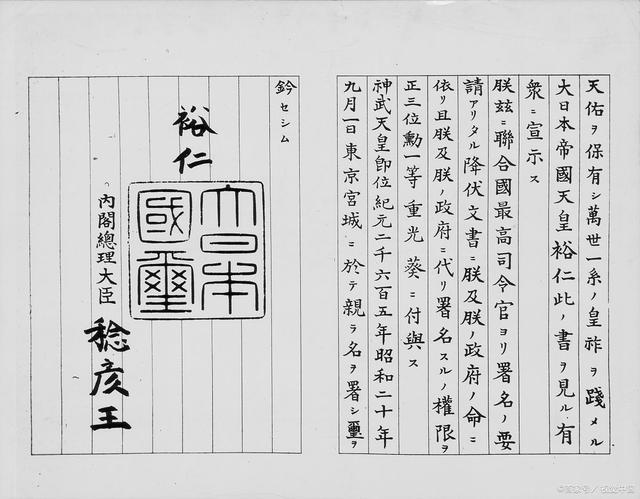 天佑ヲ保有シ萬世一系ノ皇祚ヲ踐メル
大日本帝國天皇裕仁此ノ書ヲ見ル有
衆ニ宣示ス
朕玆ニ聯合國最高司令官ヨリ署名ノ要
請アリタル降伏文書ニ朕及朕ノ政府ノ命ニ
依リ且朕及朕ノ政府ニ代リ署名スルノ權限ヲ
正三位勳一等重光葵ニ付與ス
神武天皇即位紀元二千六百五年昭和二十年
九月一日東京宮城ニ於テ親ラ名ヲ署シ璽ヲ
鈐セシム
裕仁
大日本
國璽
內閣總理大臣 稔彥王